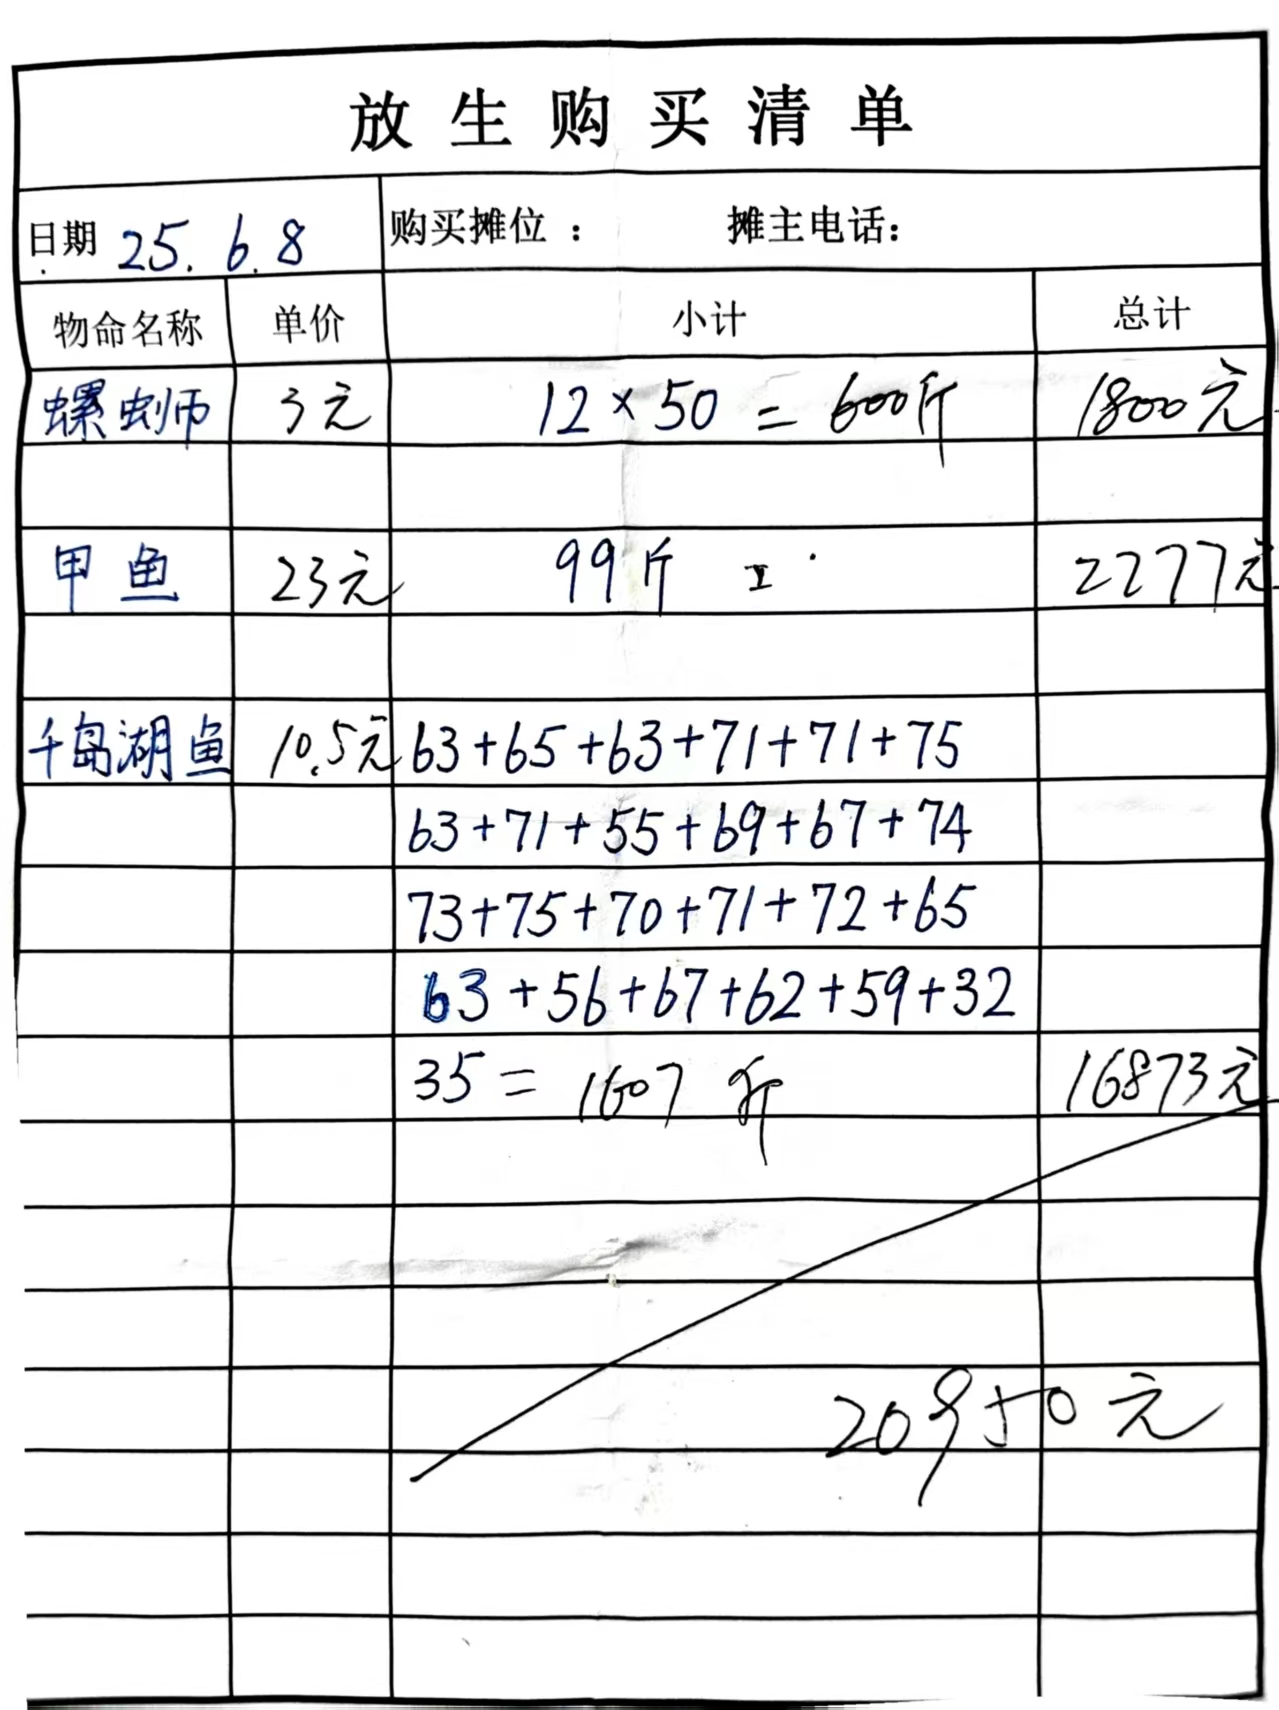 放生购买清单
日期 25.6.8 购买摊位： 摊主电话：
物命名称 单价 小计 总计
螺蛳 3元 12×50=600斤 1800元
甲鱼 23元 99斤 2277元
千岛湖鱼 10.5元 63+65+63+71+71+75
63+71+55+69+67+74
73+75+70+71+72+65
63+56+67+62+59+32
35=1607斤 16873元
20950元